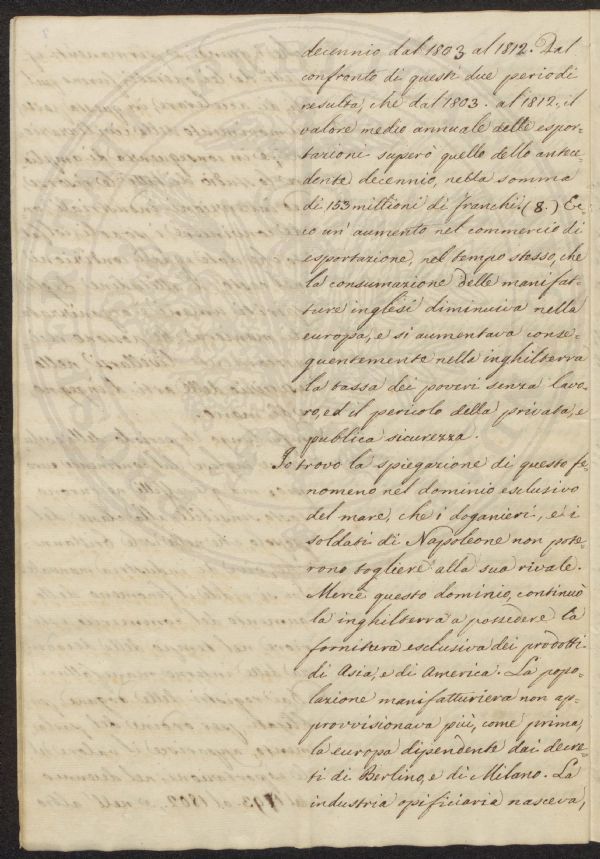 decennio dal 1803 al 1812. Dal
confronto di questi due periodi
resulta, che dal 1803. al 1812., il
valore medio annuale delle espor-
tazioni superò quello dello antece-
dente decennio, nella somma
di 153 millioni di franchi (8.) Ec-
co un' aumento nel commercio di
esportazione, nel tempo stesso, che
la consumazione delle manifat-
ture inglesi diminuiva nella
europa, e si aumentava conse-
quentemente nella inghilterra
la tassa dei poveri senza lavo-
ro, ed il pericolo della privata, e
publica sicurezza.
Io trovo la spiegazione di questo fe-
nomeno nel dominio esclusivo
del mare, che i doganieri, e i
soldati di Napoleone non pote-
rono togliere alla sua rivale.
Mercè questo dominio, continuò
la inghilterra a possedere la
fornitura esclusiva dei prodotti
di Asia, e di America. La popo-
lazione manifatturiera non ap-
provvisionava più, come prima,
la europa dipendente dai decre-
ti di Berlino, e di Milano. La
industria opificiaria nasceva,